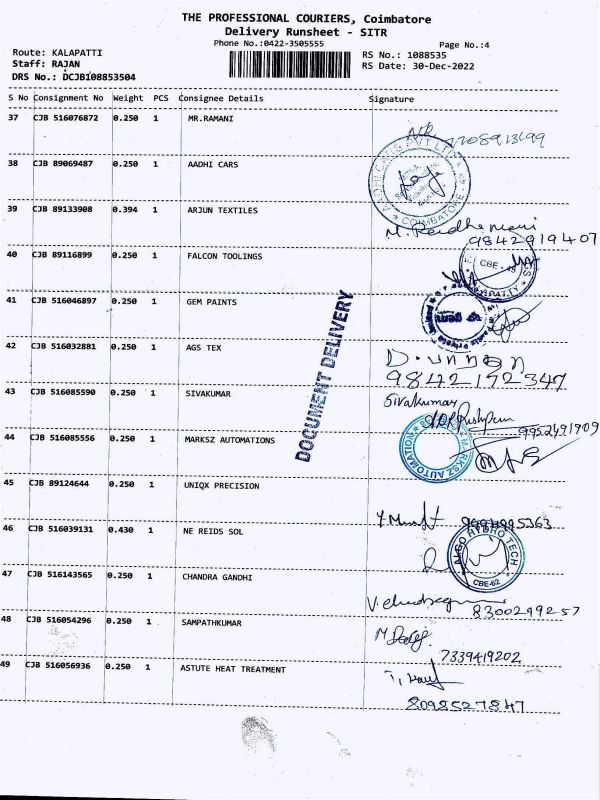 THE PROFESSIONAL COURIERS, Coimbatore
Delivery Runsheet - SITR
Phone No.:0422-3505555
Page No.:4
Route: KALAPATTI
RS No.: 1088535
Staff: RAJAN
RS Date: 30-Dec-2022
DRS No.: DCJB108853504
S No Consignment No Weight PCS Consignee Details Signature
37 CJB 516076872 0.250 1 MR.RAMANI
38 CJB 89069487 0.250 1 AADHI CARS
COIMBATORE
39 CJB 89133908 0.394 1 ARJUN TEXTILES
9842919407
40 CJB 89116899 0.250 1 FALCON TOOLINGS
41 CJB 516046897 0.250 1 GEM PAINTS
DOCUMENT DELIVERY
42 CJB 516032881 0.250 1 AGS TEX
9842172347
43 CJB 516085590 0.250 1 SIVAKUMAR
Sivakumar
44 CJB 516085556 0.250 1 MARKSZ AUTOMATIONS
9952491909
45 CJB 89124644 0.250 1 UNIQX PRECISION
46 CJB 516039131 0.430 1 NE REIDS SOL
HYDRO TECH
CBE-62
47 CJB 516143565 0.250 1 CHANDRA GANDHI
8300299257
48 CJB 516054296 0.250 1 SAMPATHKUMAR
7339419202
49 CJB 516056936 0.250 1 ASTUTE HEAT TREATMENT
8098527847